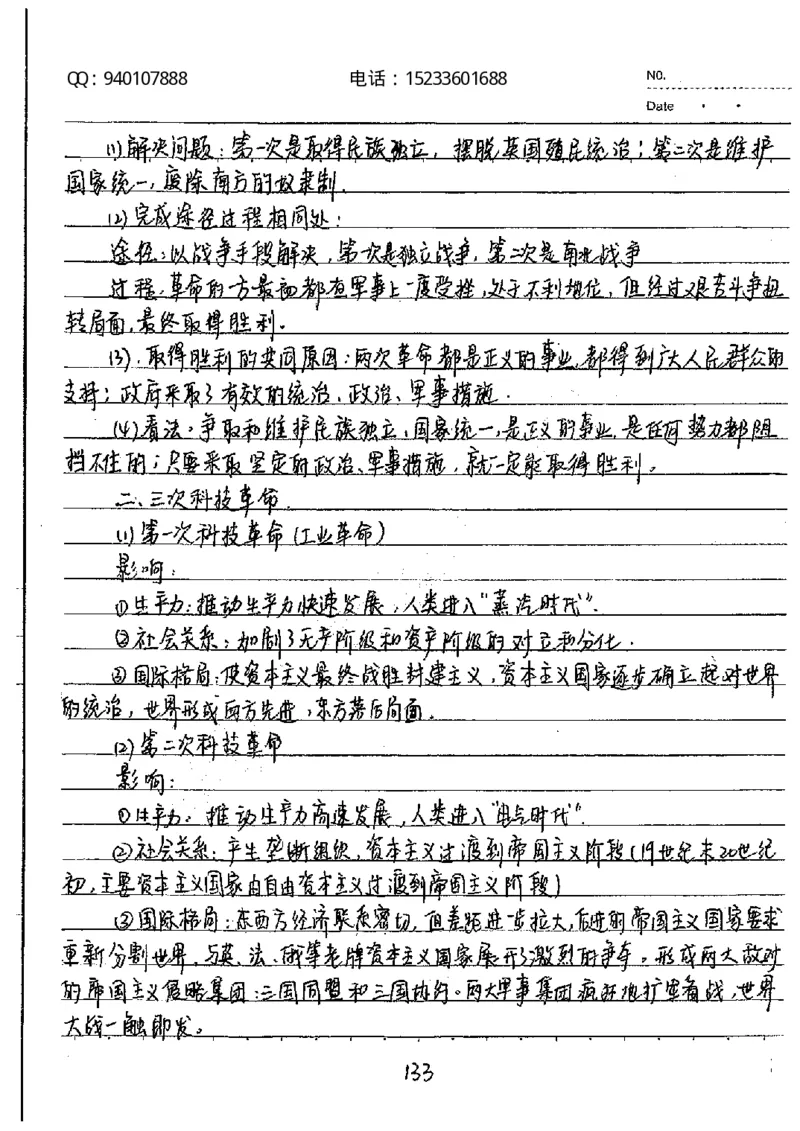 QQ：940107888 电话：15233601688 NO.
Date
(1)解决问题：第一次是取得民族独立，摆脱英国殖民统治；第二次是维护
国家统一，废除南方的奴隶制.
(2)完成途径过程相同处：
途径：以战争手段解决，第一次是独立战争，第二次是南北战争
过程：革命的一方最初都在军事上一度受挫，处于不利地位，但经过艰苦斗争扭
转局面，最终取得胜利。
(3).取得胜利的共同原因：两次革命都是正义的事业，都得到广大人民群众的
支持；政府采取了有效的统治、政治、军事措施.
(4)看法：争取和维护民族独立、国家统一，是正义的事业，是任何势力都阻
挡不住的；只要采取坚定的政治、军事措施，就一定能取得胜利。
二、三次科技革命.
(1)第一次科技革命(工业革命)
影响：
①生产力：推动生产力快速发展，人类进入“蒸汽时代”.
②社会关系：加剧了无产阶级和资产阶级的对立和分化.
③国际格局：使资本主义最终战胜封建主义，资本主义国家逐步确立起对世界
的统治，世界形成西方先进，东方落后局面.
(2)第二次科技革命
影响：
①生产力：推动生产力高速发展，人类进入“电气时代”.
②社会关系：产生垄断组织，资本主义过渡到帝国主义阶段(19世纪末20世纪
初，主要资本主义国家由自由资本主义过渡到帝国主义阶段)
③国际格局：东西方经济联系密切，但差距进一步拉大，后进的帝国主义国家要求
重新分割世界，与英、法、俄等老牌资本主义国家展开了激烈的争夺。形成两大敌对
的帝国主义侵略集团：三国同盟和三国协约。两大军事集团疯狂地扩军备战，世界
大战一触即发。
133